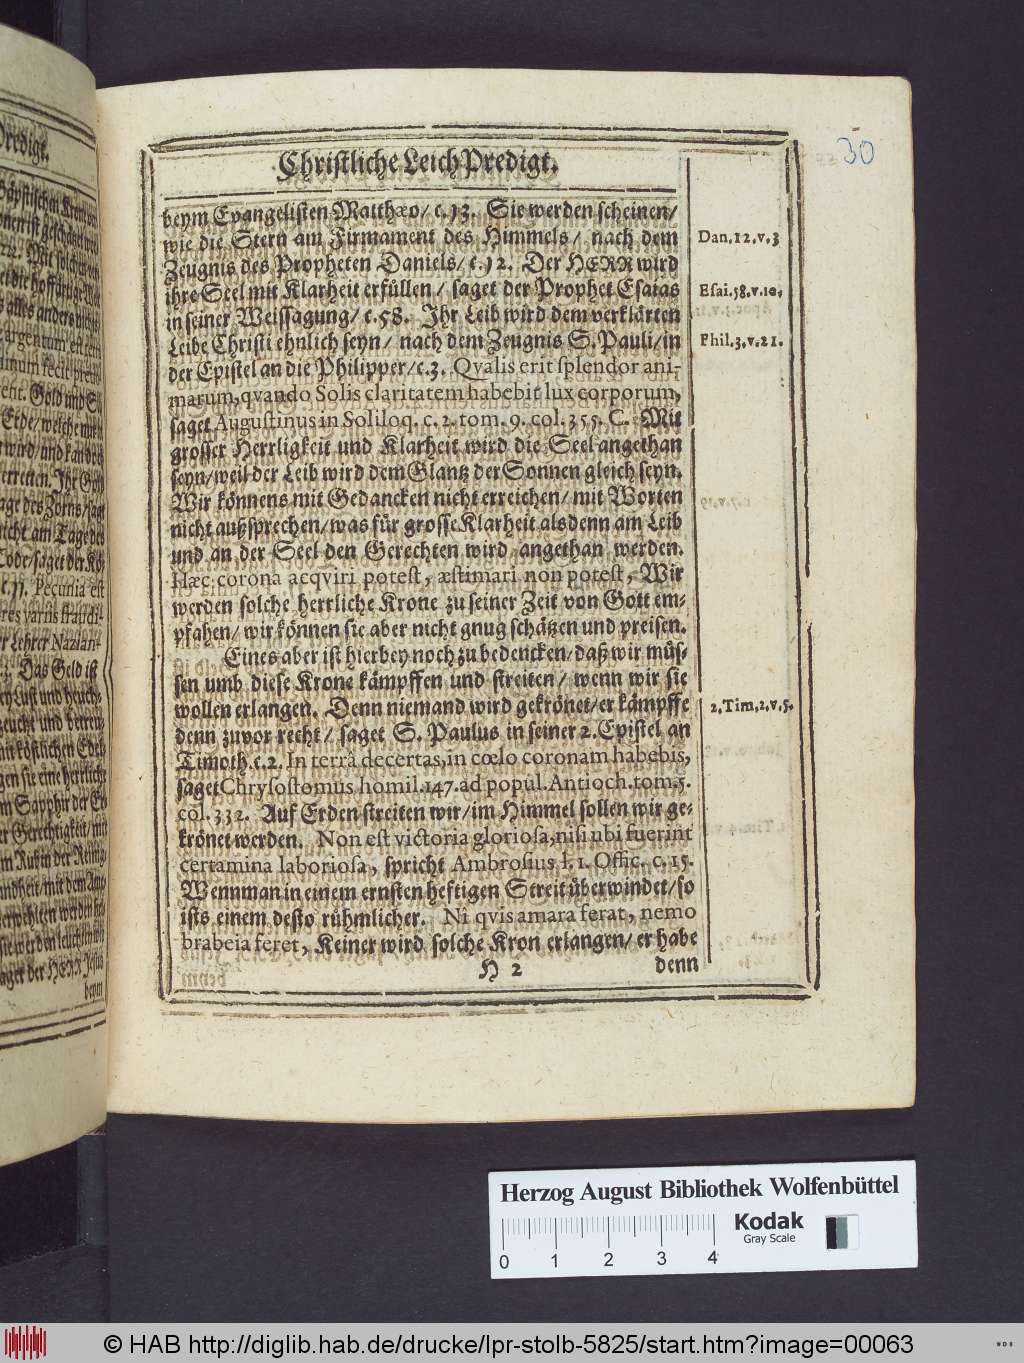 Predigt.
Christliche Leich Predigt.
30
beym Evangelisten Matthæo/ c. 13. Sie werden scheinen/
wie die Stern am Firmament des Himmels/ nach dem
Dan. 12. v. 3
Zeugnis des Propheten Daniels/ c. 12. Der HERR wird
ihre Seel mit Klarheit erfüllen/ saget der Prophet Esaias
Esai. 58. v. 10.
in seiner Weissagung/ c. 58. Ihr Leib wird dem verklärten
Leibe Christi ehnlich seyn/ nach dem Zeugnis S. Pauli/ in
Phil. 3. v. 21.
der Epistel an die Philipper/ c. 3. Qvalis erit splendor ani-
marum, qvando Solis claritatem habebit lux corporum,
saget Augustinus in Soliloq. c. 2. tom. 9. col. 355. C. Mit
grosser Herrligkeit und Klarheit wird die Seel angethan
seyn/ weil der Leib wird dem Glantz der Sonnen gleich seyn.
Wir können s mit Gedancken nicht erreichen/ mit Worten
nicht außsprechen/ was für grosse Klarheit alsdenn am Leib
und an der Seel den Gerechten wird angethan werden.
Hæc corona acqviri potest, æstimari non potest, Wir
werden solche herrliche Krone zu seiner Zeit von Gott em-
pfahen/ wir können sie aber nicht gnug schätzen und preisen.
Eines aber ist hierbey noch zu bedencken/ daß wir müs-
sen umb diese Krone kämpffen und streiten/ wenn wir sie
wollen erlangen. Denn niemand wird gekrönet/ er kämpffe
2. Tim. 2. v. 5.
denn zuvor recht/ saget S. Paulus in seiner 2. Epistel an
Timoth. c. 2. In terrâ decertas, in cœlo coronam habebis,
saget Chrysostomus homil. 147. ad popul. Antioch. tom. 5.
col. 332. Auf Erden streiten wir/ im Himmel sollen wir ge-
krönet werden. Non est victoria gloriosa, nisi ubi fuerint
certamina laboriosa, spricht Ambrosius l. 1. Offic. c. 15.
Wenn man in einem ernsten heftigen Streit überwindet/ so
ists einem desto rühmlicher. Ni qvis amara ferat, nemo
brabeia feret, Keiner wird solche Kron erlangen/ er habe
H 2
denn
Herzog August Bibliothek Wolfenbüttel
0 1 2 3 4
Kodak
Gray Scale
© HAB http://diglib.hab.de/drucke/lpr-stolb-5825/start.htm?image=00063